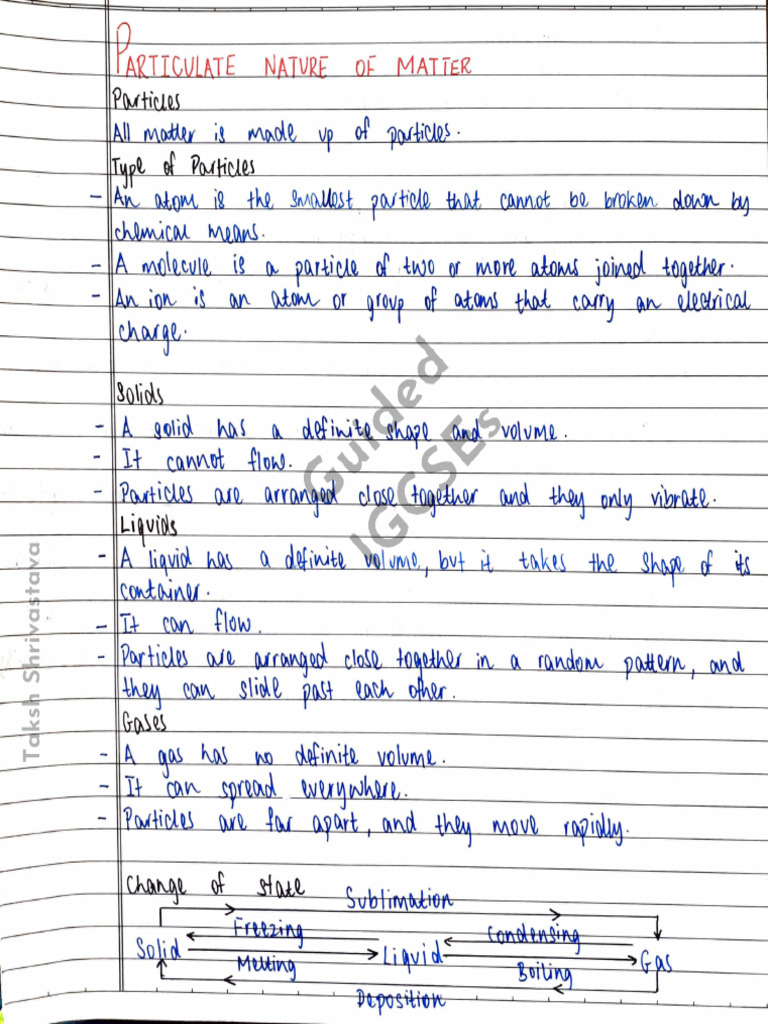 PARTICULATE NATURE OF MATTER
Particles
All matter is made up of particles.
Type of Particles
- An atom is the smallest particle that cannot be broken down by
chemical means.
- A molecule is a particle of two or more atoms joined together.
- An ion is an atom or group of atoms that carry an electrical
charge.
Solids
- A solid has a definite shape and volume.
- It cannot flow.
- Particles are arranged close together and they only vibrate.
Liquids
- A liquid has a definite volume, but it takes the shape of its
container.
- It can flow.
- Particles are arranged close together in a random pattern, and
they can slide past each other.
Gases
- A gas has no definite volume.
- It can spread everywhere.
- Particles are far apart, and they move rapidly.
Change of state
Sublimation
Freezing Condensing
Solid Liquid Gas
Melting Boiling
Deposition
Guided
IGCSEs
Taksh Shrivastava